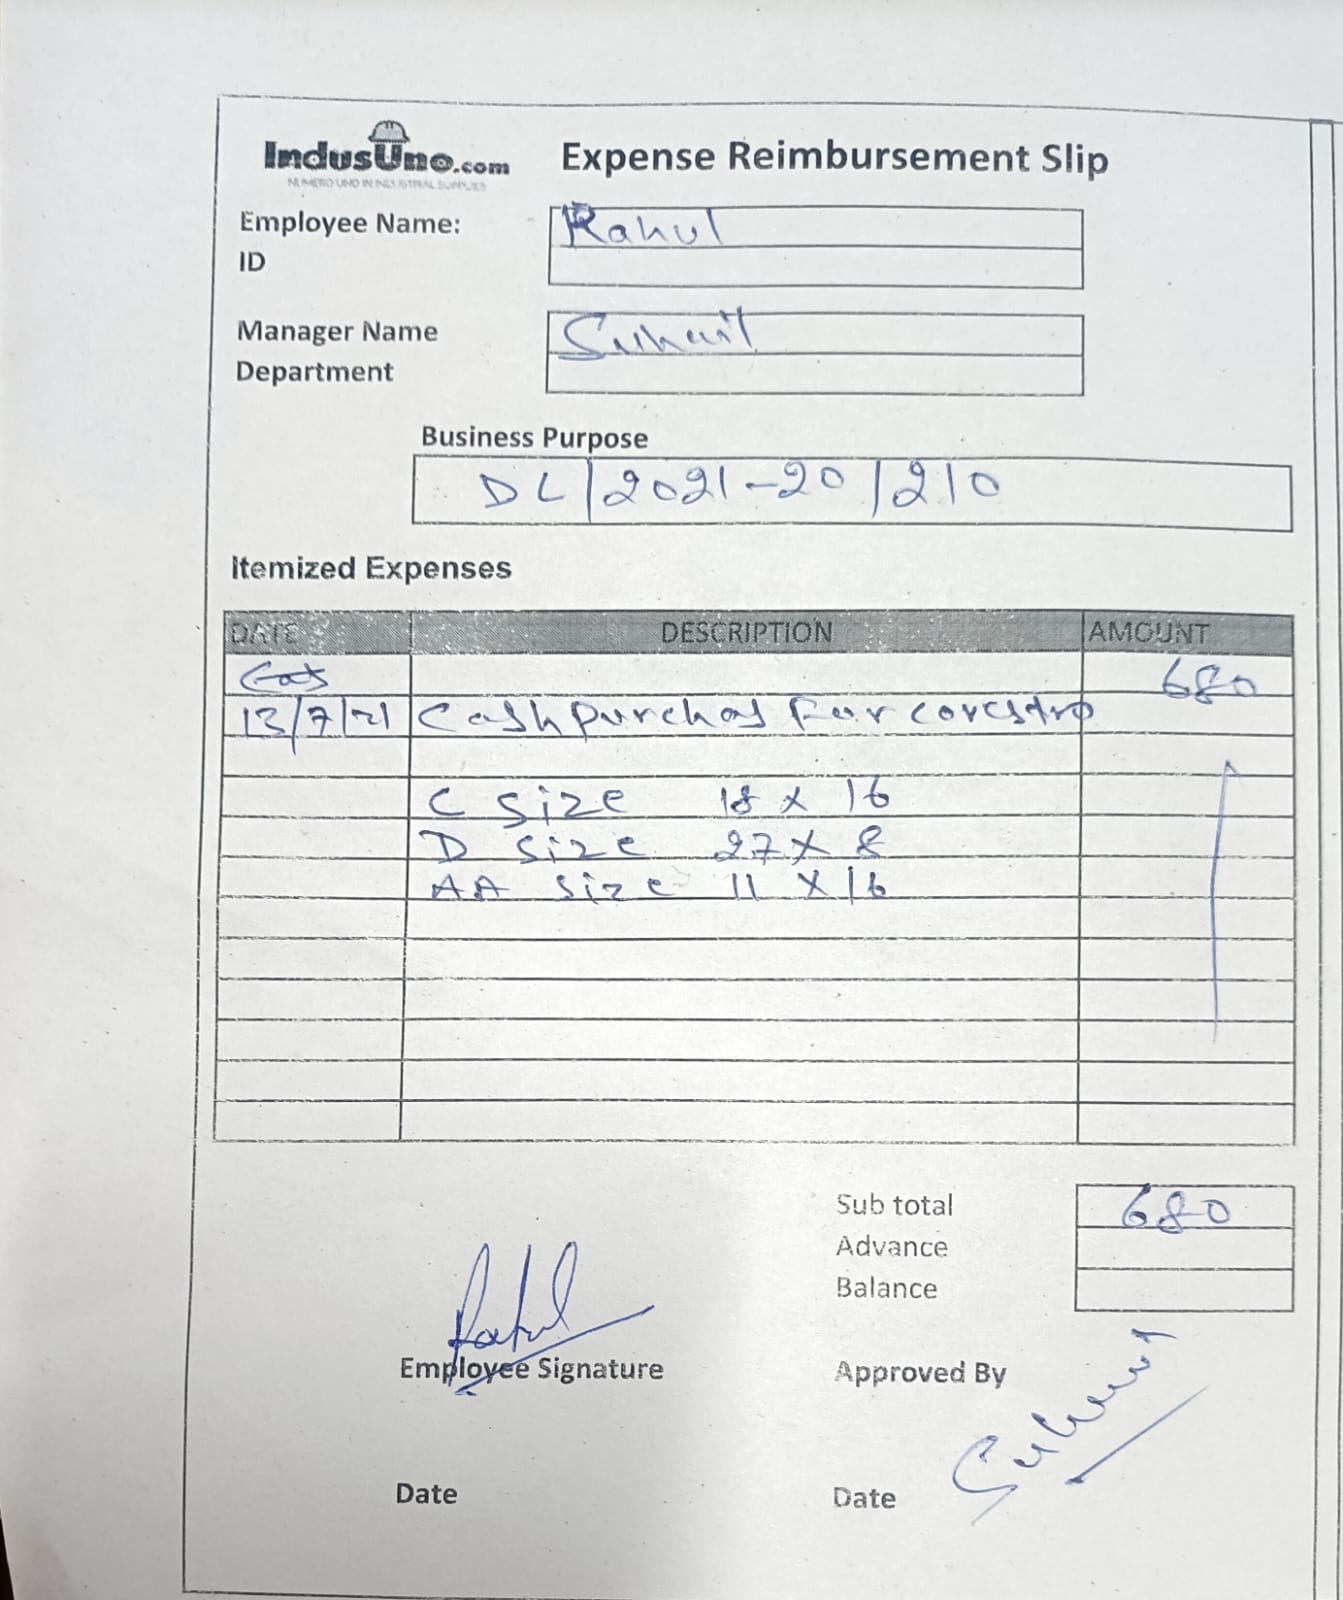 IndusUno.com
NUMERO UNO IN INDUSTRIAL SUPPLIES
Expense Reimbursement Slip
Employee Name: Rahul
ID
Manager Name Suhail
Department
Business Purpose
DL/2021-20/210
Itemized Expenses
DATE DESCRIPTION AMOUNT
680
13/7/21 Cash purchas For covestro
C size 18 x 16
D size 27 x 8
AA size 11 x 16
Sub total 680
Advance
Balance
Rahul
Employee Signature Approved By
Suhail
Date Date